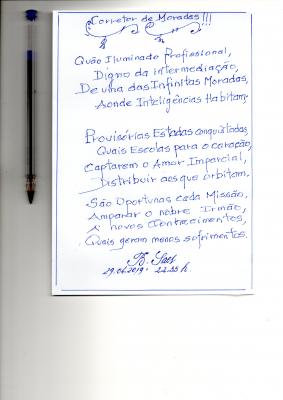 Corretor de Moradas!!!
Quão Iluminado Profissional,
Digno da intermediação,
De uma das Infinitas Moradas,
Aonde Inteligências Habitam.
Provisórias Estadas conquistadas,
Quais Escolas para o coração,
Captarem o Amor Imparcial,
Distribuir aos que orbitam.
São Oportunas cada Missão,
Amparar o nobre Irmão,
A novos Contecimentos,
Quais geram menos sofrimentos.
B. Saes
29.01.2019. 22.55 h.